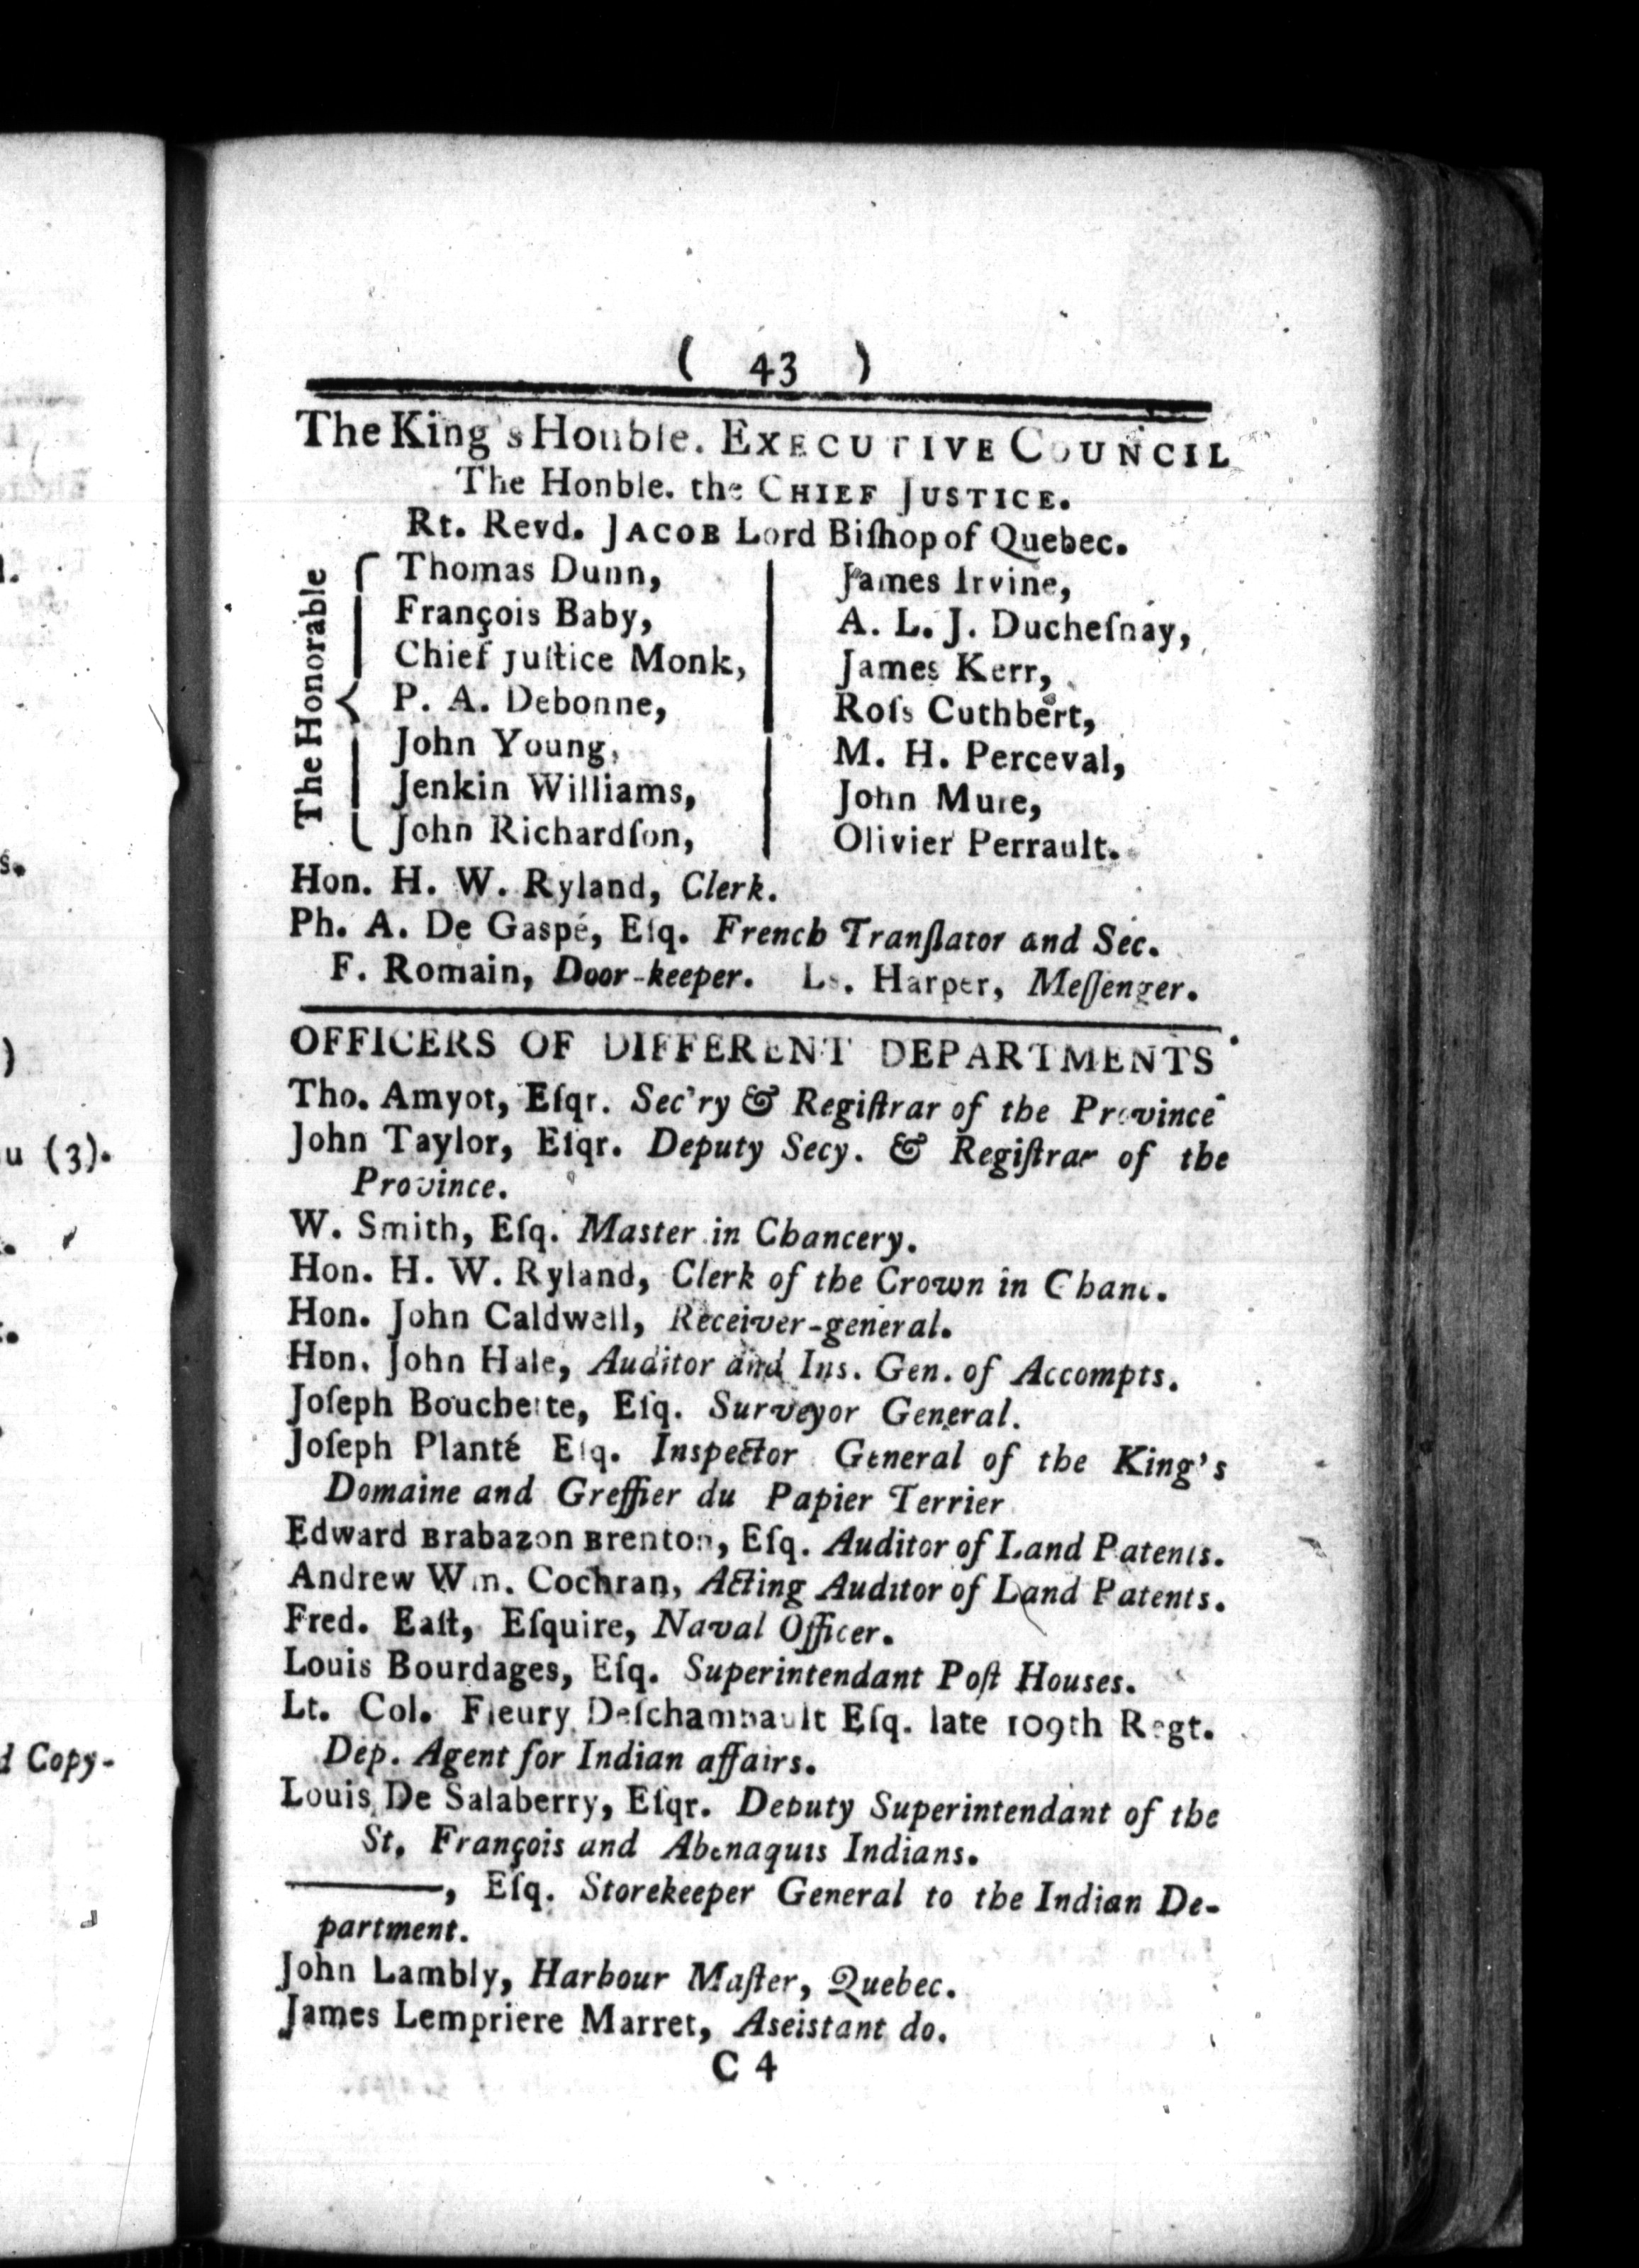 ( 43 )
The King's Honble. EXECUTIVE COUNCIL
The Honble. the CHIEF JUSTICE.
Rt. Revd. JACOB Lord Biſhop of Quebec.
The Honorable
Thomas Dunn,
François Baby,
Chief Juſtice Monk,
P. A. Debonne,
John Young,
Jenkin Williams,
John Richardſon,
James Irvine,
A. L. J. Ducheſnay,
James Kerr,
Roſs Cuthbert,
M. H. Perceval,
John Mure,
Olivier Perrault.
Hon. H. W. Ryland, Clerk.
Ph. A. De Gaspé, Eſq. French Tranſlator and Sec.
F. Romain, Door-keeper. Ls. Harper, Meſſenger.
OFFICERS OF DIFFERENT DEPARTMENTS
Tho. Amyot, Eſqr. Sec'ry & Regiſtrar of the Province
John Taylor, Eſqr. Deputy Secy. & Regiſtrar of the
Province.
W. Smith, Eſq. Master in Chancery.
Hon. H. W. Ryland, Clerk of the Crown in Chanc.
Hon. John Caldwell, Receiver-general.
Hon. John Hale, Auditor and Ins. Gen. of Accompts.
Joſeph Bouchette, Eſq. Surveyor General.
Joſeph Planté Eſq. Inspector General of the King's
Domaine and Greffier du Papier Terrier
Edward Brabazon Brenton, Eſq. Auditor of Land Patents.
Andrew Wm. Cochran, Acting Auditor of Land Patents.
Fred. Eaſt, Eſquire, Naval Officer.
Louis Bourdages, Eſq. Superintendant Poſt Houses.
Lt. Col. Fleury Deſchambault Eſq. late 109th Regt.
Dep. Agent for Indian affairs.
Louis De Salaberry, Eſqr. Deputy Superintendant of the
St. François and Abenaquis Indians.
———, Eſq. Storekeeper General to the Indian De-
partment.
John Lambly, Harbour Maſter, Quebec.
James Lempriere Marret, Aseistant do.
C 4
u (3).
d Copy-